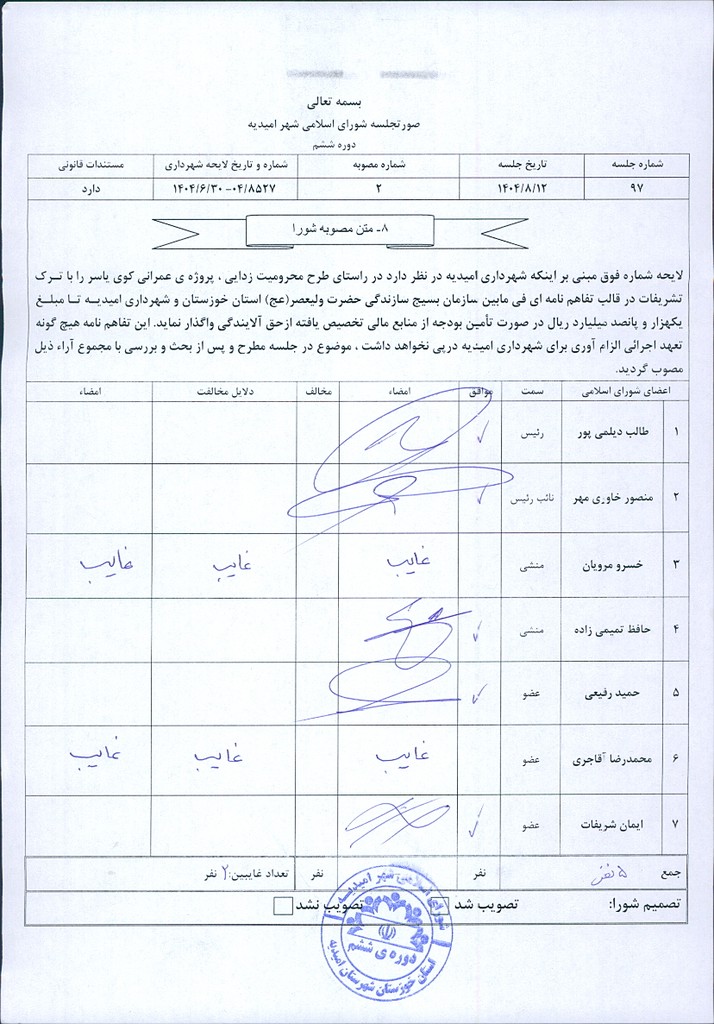 بسمه تعالی
صورتجلسه شورای اسلامی شهر امیدیه
دوره ششم
شماره جلسه تاریخ جلسه شماره مصوبه شماره و تاریخ لایحه شهرداری مستندات قانونی
۹۷ ۱۴۰۴/۸/۱۲ ۲ ۱۴۰۴/۶/۳۰-۰۴/۸۵۲۷ دارد
۸ـ متن مصوبه شورا
لایحه شماره فوق مبنی بر اینکه شهرداری امیدیه در نظر دارد در راستای طرح محرومیت زدایی ، پروژه ی عمرانی کوی یاسر را با تـرک
تشریفات در قالب تفاهم نامه ای فی مابین سازمان بسیج سازندگی حضرت ولیعصر(عج) استان خوزستان و شهرداری امیدیـه تـا مبلـغ
یکهزار و پانصد میلیارد ریال در صورت تأمین بودجه از منابع مالی تخصیص یافته ازحق آلایندگی واگذار نماید. این تفاهم نامه هیچ گونه
تعهد اجرائی الزام آوری برای شهرداری امیدیه درپی نخواهد داشت ، موضوع در جلسه مطرح و پس از بحث و بررسی با مجموع آراء ذیل
مصوب گردید.
اعضای شورای اسلامی سمت موافق امضاء مخالف دلایل مخالفت امضاء
۱ طالب دیلمی پور رئیس ✓
۲ منصور خاوری مهر نائب رئیس ✓
۳ خسرو مرویان منشی غایب غایب غایب
۴ حافظ تمیمی زاده منشی ✓
۵ حمید رفیعی عضو ✓
۶ محمدرضا آقاجری عضو غایب غایب غایب
۷ ایمان شریفات عضو ✓
جمع ۵ نفر نفر نفر تعداد غایبین:۲ نفر
تصمیم شورا: تصویب شد تصویب نشد
شورای اسلامی شهر امیدیه
دوره ی ششم
استان خوزستان شهرستان امیدیه